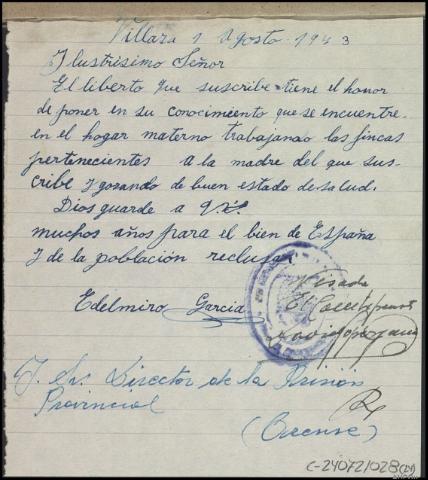 Villaza 1 Agosto 1943
Ilustrisimo Señor
El liberto que suscribe tiene el honor
de poner en su conocimiento que se encuentre
en el hogar materno trabajando las fincas
pertenecientes a la madre del que sus-
cribe y gosando de buen estado de salud.
Dios guarde a
muchos años para el bien de España
y de la población reclusa.
Edelmiro Garcia
Visado
El
I. Sr. Director de la Prisión
Provincial
(Orense)
C-24072/028(24)